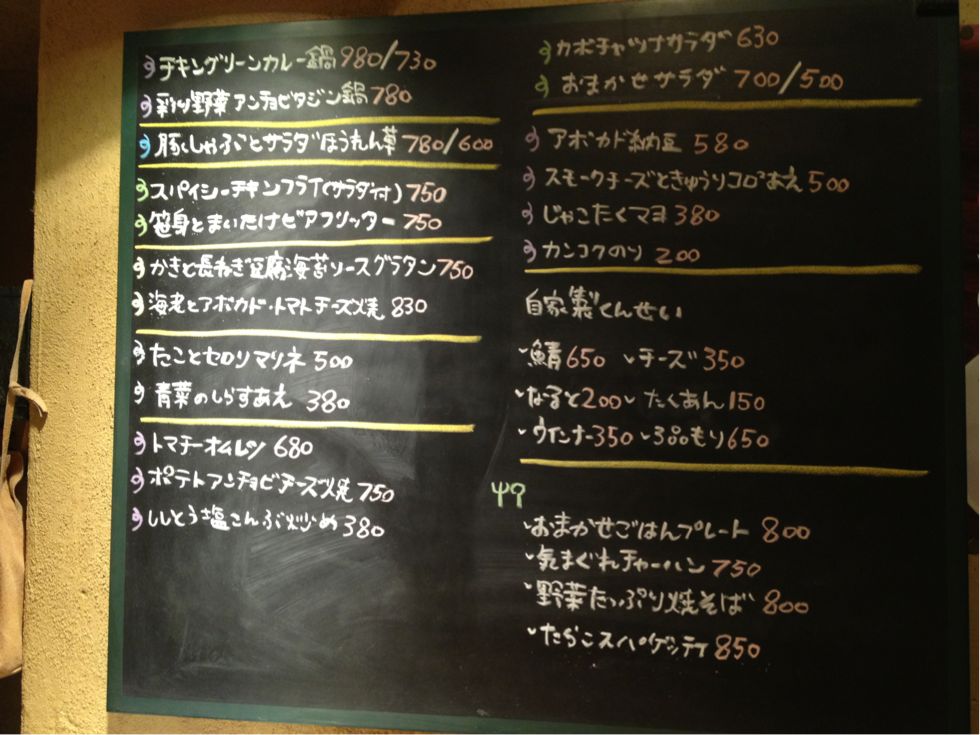 チキングリーンカレー鍋 980/730
彩り野菜アンチョビタジン鍋 780
豚しゃぶことサラダほうれん草 780/600
スパイシーチキンフライ(サラダ付) 750
笹身とまいたけビアフリッター 750
かきと長ねぎ豆腐海苔ソースグラタン 750
海老とアボカド・トマトチーズ焼 830
たことセロリマリネ 500
青菜のしらすあえ 380
トマチーオムレツ 680
ポテトアンチョビチーズ焼 750
ししとう塩こんぶ炒め 380
カボチャツナサラダ 630
おまかせサラダ 700/500
アボカド納豆 580
スモークチーズときゅうりコロコロあえ 500
じゃこたくマヨ 380
カンコクのり 200
自家製くんせい
鯖 650 チーズ 350
なると 200 たくあん 150
ウインナー 350 3品もり 650
おまかせごはんプレート 800
気まぐれチャーハン 750
野菜たっぷり焼そば 800
たらこスパゲッティ 850